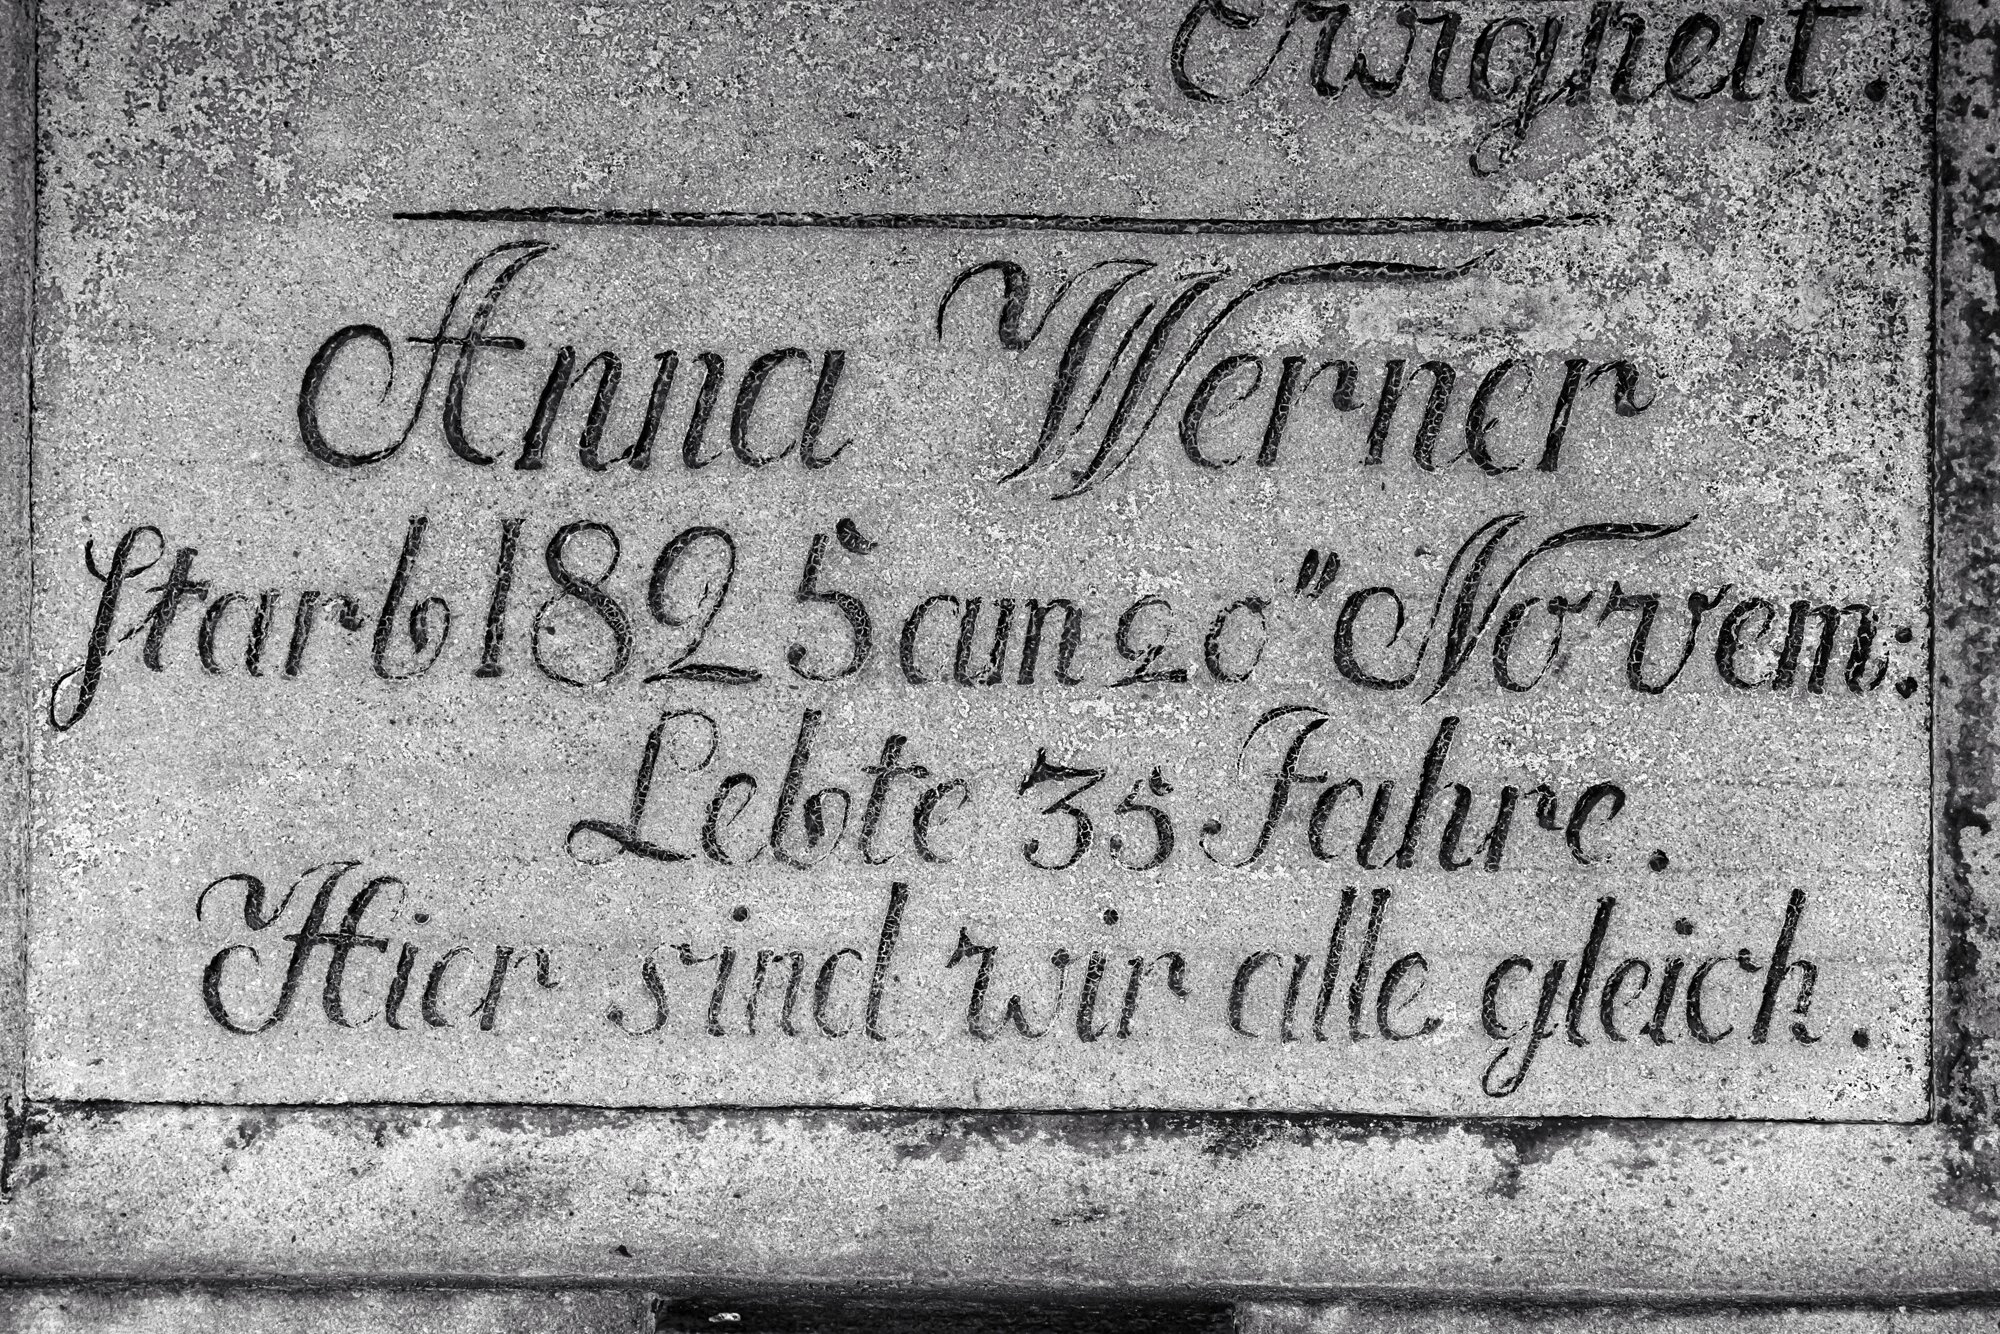 Ewigkeit.
Anna Werner
starb 1825 am 20" Novem:
Lebte 35 Jahre.
Hier sind wir alle gleich.